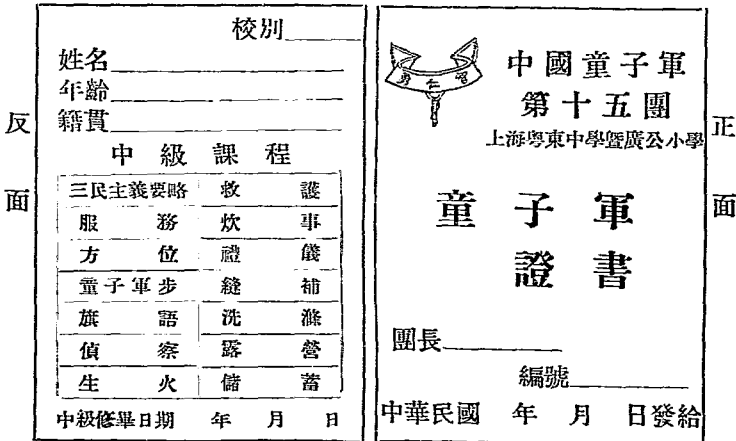 反面
校別
姓名
年齡
籍貫
中級課程
三民主義要略 救護
服務 炊事
方位 禮儀
童子軍步 縫補
旗語 洗滌
偵察 露營
生火 儲蓄
中級修畢日期 年 月 日
正面
智仁勇
中國童子軍
第十五團
上海粤東中學暨廣公小學
童子軍
證書
團長
編號
中華民國 年 月 日發給